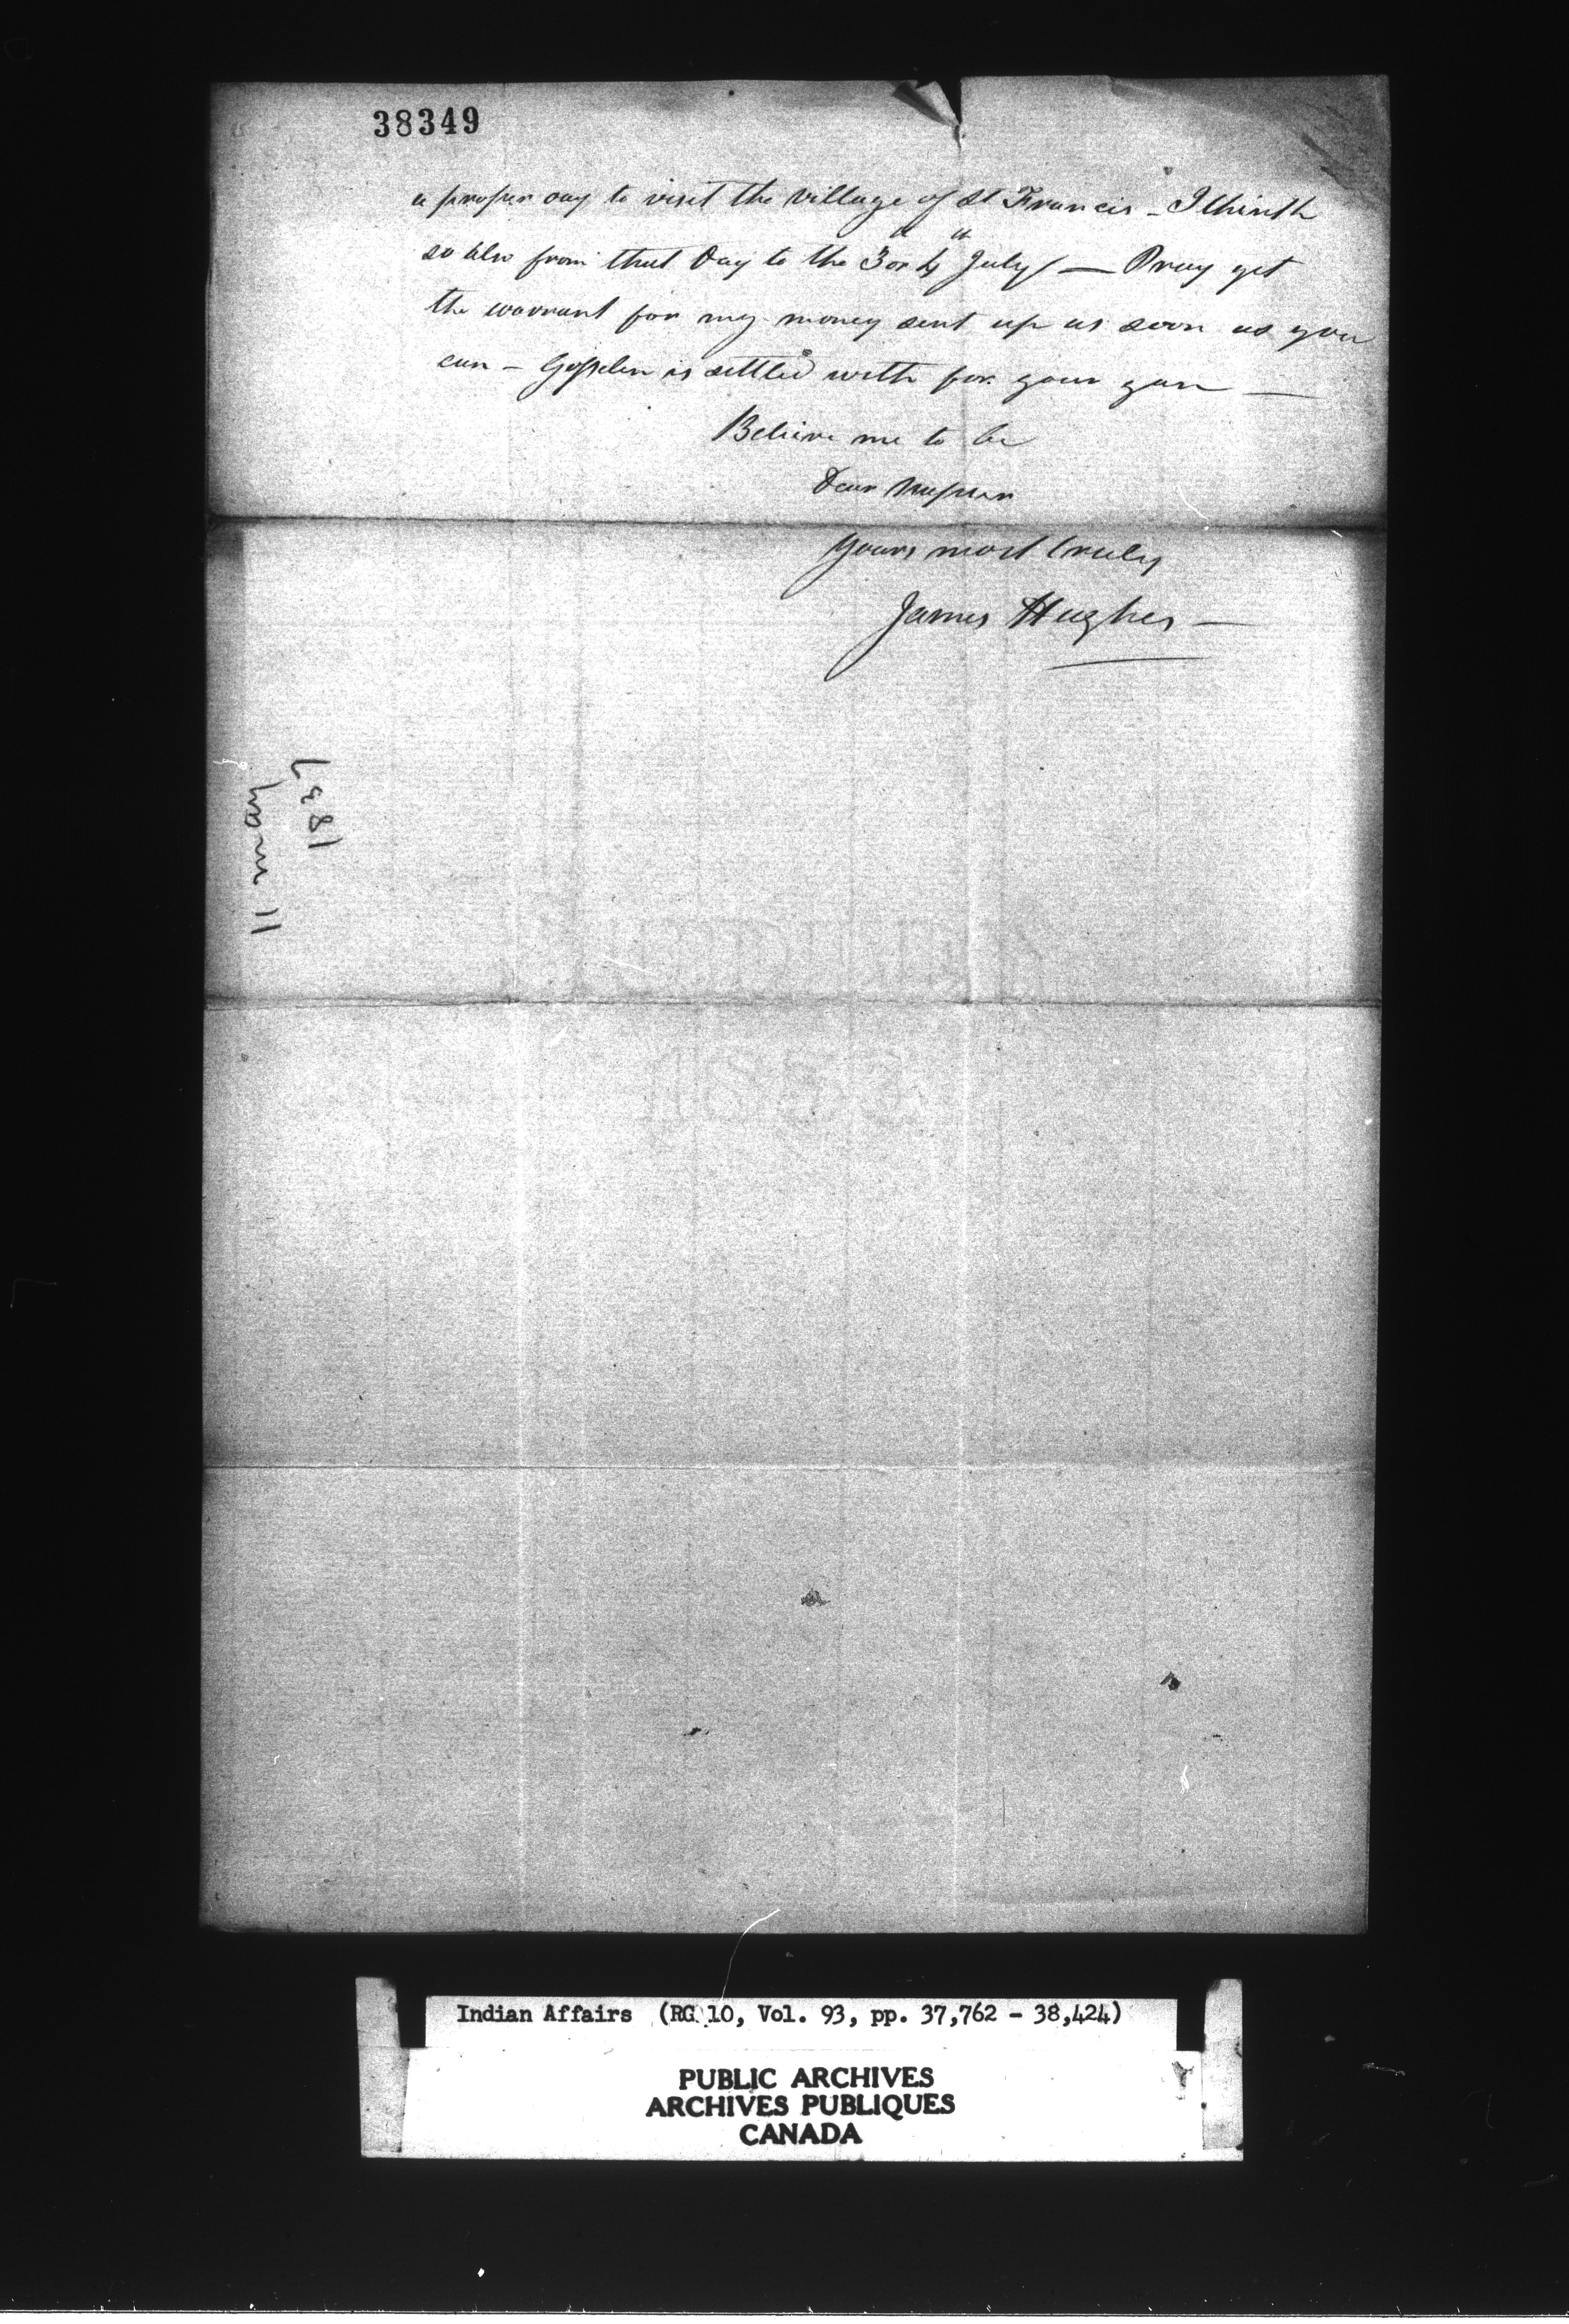 38349
a proper day to visit the village of St Francis - I think
so also from that Day to the 3 or 4th July / — Pray get
the warrant for my money sent up as soon as you
can — Gosselin is settled with for your gun —
Believe me to be
Dear Napier
Yours most truly
James Hughes —
1837
11 may
Indian Affairs (RG 10, Vol. 93, pp. 37,762 - 38,424)
PUBLIC ARCHIVES
ARCHIVES PUBLIQUES
CANADA